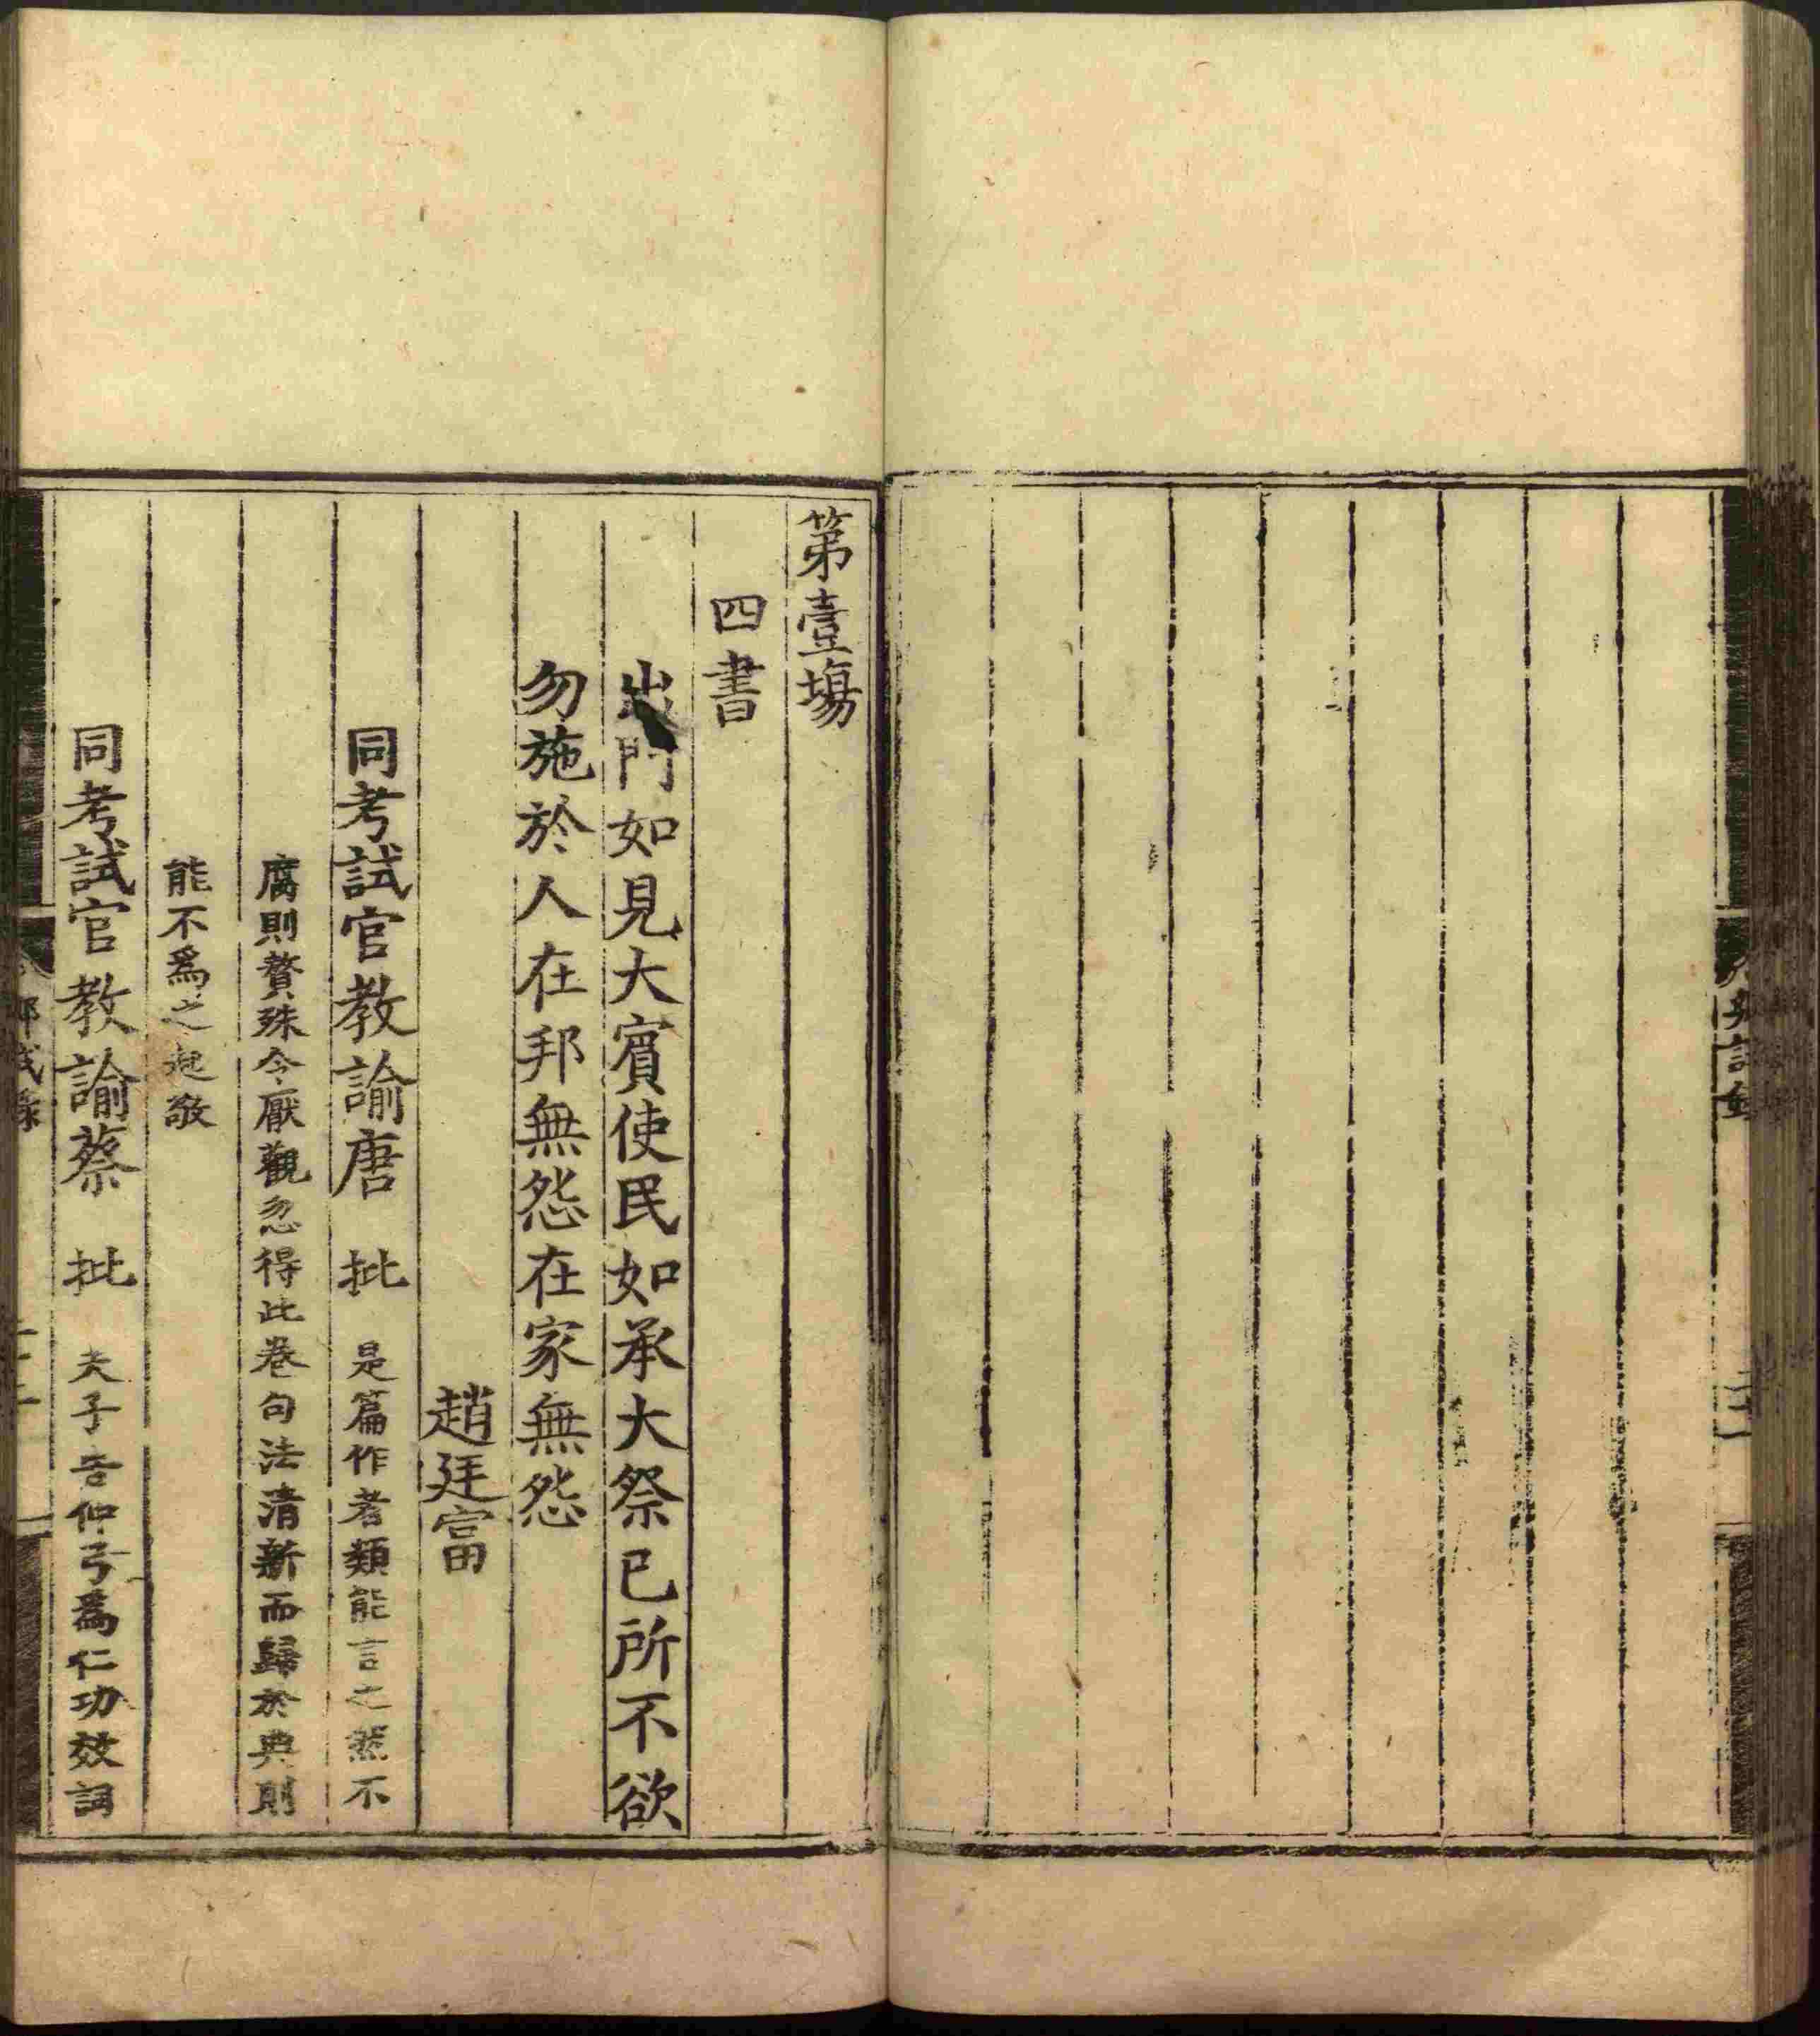 第壹場
四書
出門如見大賓使民如承大祭已所不欲
勿施於人在邦無怨在家無怨
趙廷富
同考試官教諭唐 批 是篇作者類能言之然不
腐則贅殊令厭觀忽得此卷句法清新而歸於典則
能不為之起敬
同考試官教諭蔡 批 夫子告仲弓為仁功效詞
試錄